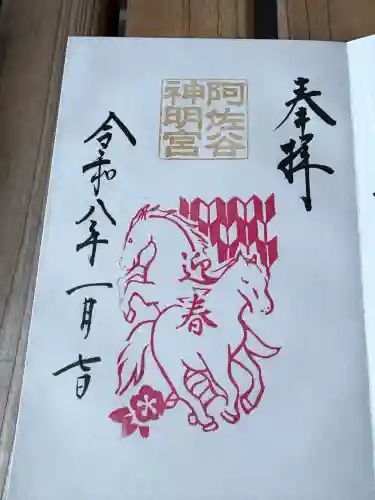 奉拝
阿佐谷
神明宮
迎春
令和八年一月七日